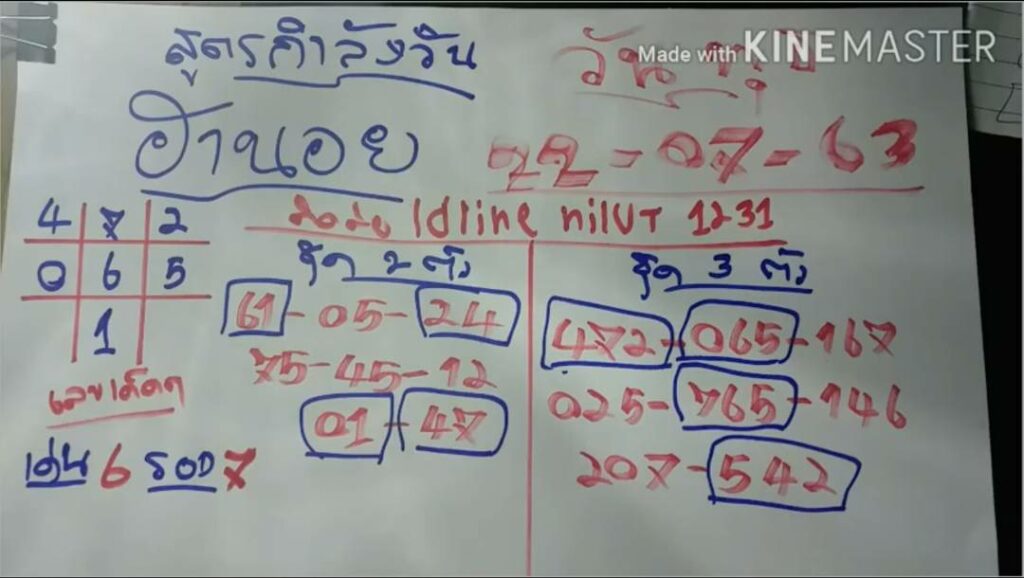 สูตรกำลังวัน
วัน พุธ
Made with KINEMASTER
ฮานอย
22-07-63
ติดต่อ Idline nilUT 1231
4 7 2
0 6 5
1
เลขเด็ดๆ
เด่น 6 รอง 7
ชุด 2 ตัว
61-05-24
75-45-12
01-47
ชุด 3 ตัว
472-065-167
025-765-146
207-542